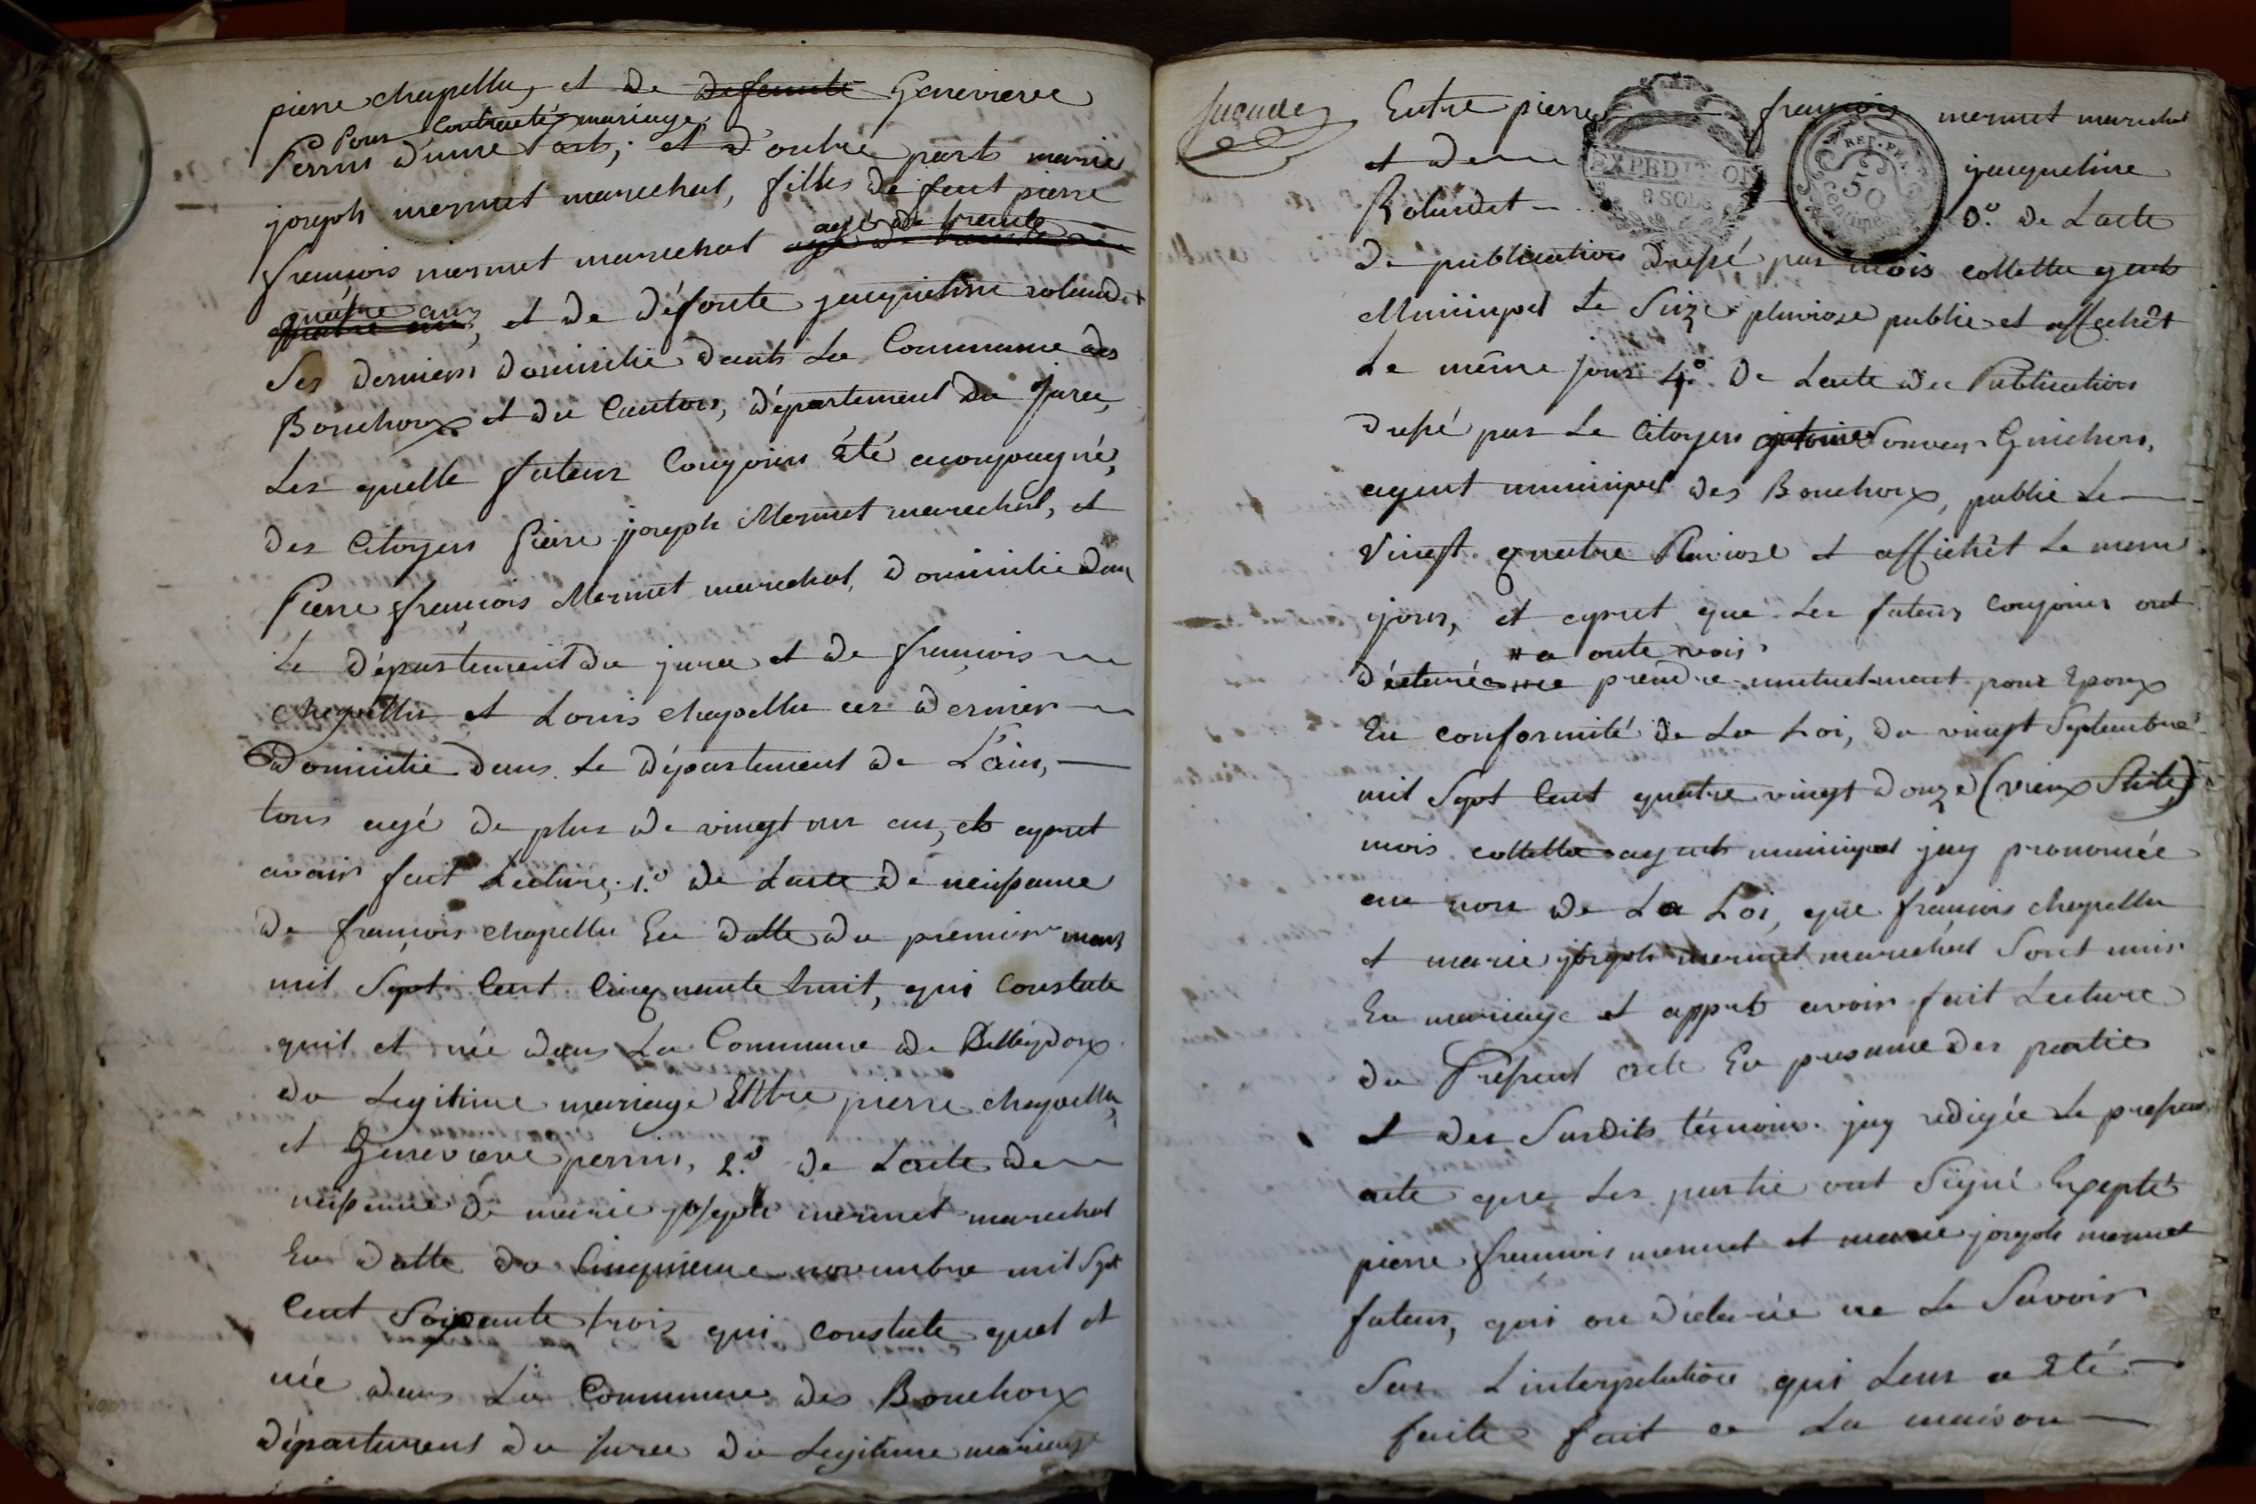 pierre chapellu, et de defunte Genevieve
Pour contracté mariage,
Perrin d'une Part; et d'outre part marie
joseph mermet marechal, filles de feut pierre
agé de trente
françois mermet marechal agé de trente
quatre ans
quatre ans, et de défunte jacqueline rolandet
Ses derniers domicilié dans La Commune des
Bouchoux et du Canton, département du Jura,
Les quelle futeur Conjoins été acompagné,
des Citoyens Pierre joseph Mermet marechal, et
Pierre françois Mermet marechal, domicilié dans
Le département du jura et de françois
chapellu et Louis chapellu ces dernier
Domicilié dans Le département de L'ain,
tous agé de plus de vingt un an, et apret
avoir fait Lecture, 1.º de Lacte de neissance
de françois chapellu En datte du premier mars
mil Sept Cent Cinquante huit, qui Constate
quil et née dans La Commune de Belleydoux
du Legitime mariage Entre pierre chapellu,
et Genevieve perrin, 2.º de Lacte de
neissance de marie joseph mermet marechal
En datte du Cinquieme novembre mil Sept
Cent Soixante trois qui Constate quel et
née dans La Commune des Bouchoux
département du Jura du Legitime mariage
Entre pierre françois mermet marechal
et de jacqueline
EXPEDITION
8 SOLS
REP. FRA.
50
Centimes
Rolandet 3.º de Lacte
de publication dressé par mois collettu agent
Municipal Le Siize pluviose publié et affichêt
Le même jour 4.º de Lacte de Publication
dressé par Le Citoyen antoine Guichon,
agent municipal des Bouchoux, publié Le
Vingt quatre Pluviose et affichêt Le meme
jour, et apret que Les futeurs Conjoins ont
a oute voix
déclarée se prendre mutuelmant pour Epoux
En conformité de La Loi, du vingt Septembre
mil Sept Cent quatre vingt douze (vieux Stile)
mois collettu agent municipal jay prononcée
au nom de La Loi, que françois chapellu
et marie joseph mermet marechal Sont unis
En mariage et appret avoir fait Lecture
du Present acte En presance des partie
et des Susdits témoins jay redigée Le present
acte que Les partie ont Signé Excepté
pierre françois mermet et marie joseph mermet
futeur, qui on déclarée ne Le Savoir
Sur L'interpelation qui Leur a Eté
faite fait a La maison